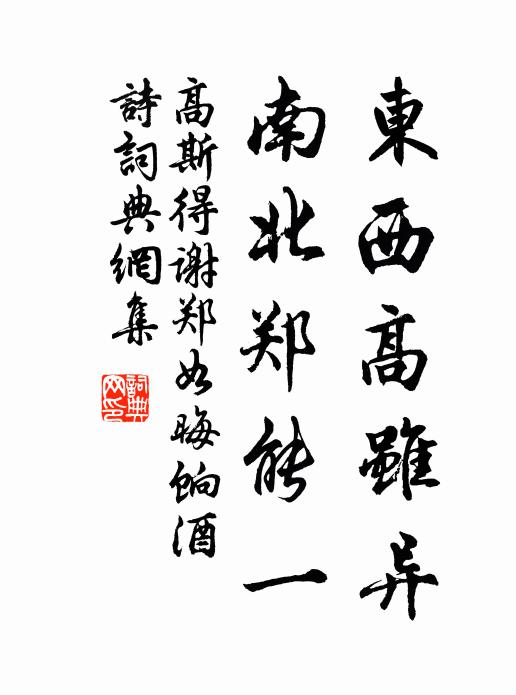 東西高雖异
南北郑能一
高斯得谢郑如晦饷酒
詩詞典網集
詞典網印